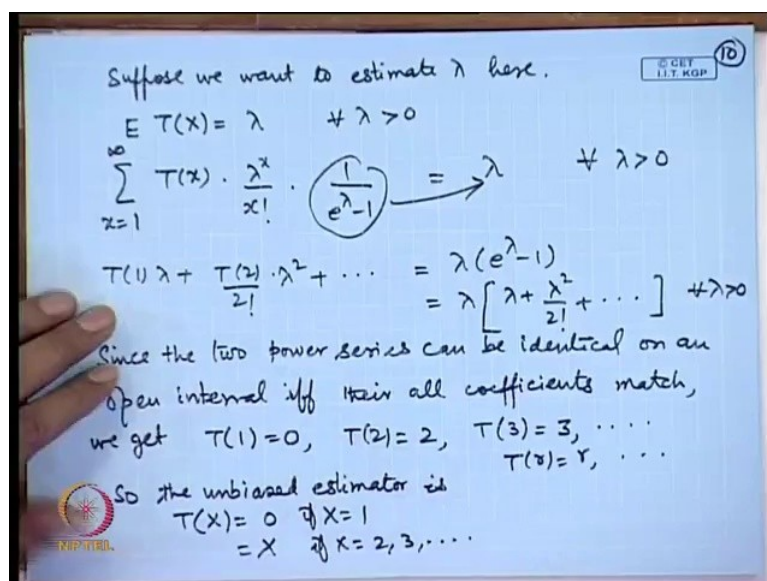 © CET
I.I.T. KGP
10
Suppose we want to estimate λ here.
E T(X) = λ ∀ λ > 0
∞
∑ T(x) · λ^x / x! · 1 / (e^λ - 1) = λ ∀ λ > 0
x=1
T(1) λ + T(2)/2! · λ² + ··· = λ (e^λ - 1)
= λ [ λ + λ²/2! + ··· ] ∀ λ>0
Since the two power series can be identical on an
open interval iff their all coefficients match,
we get T(1) = 0, T(2) = 2, T(3) = 3, ····
T(r) = r, ···
So the unbiased estimator is
T(X) = 0 if X = 1
= X if X = 2, 3, ····
NPTEL